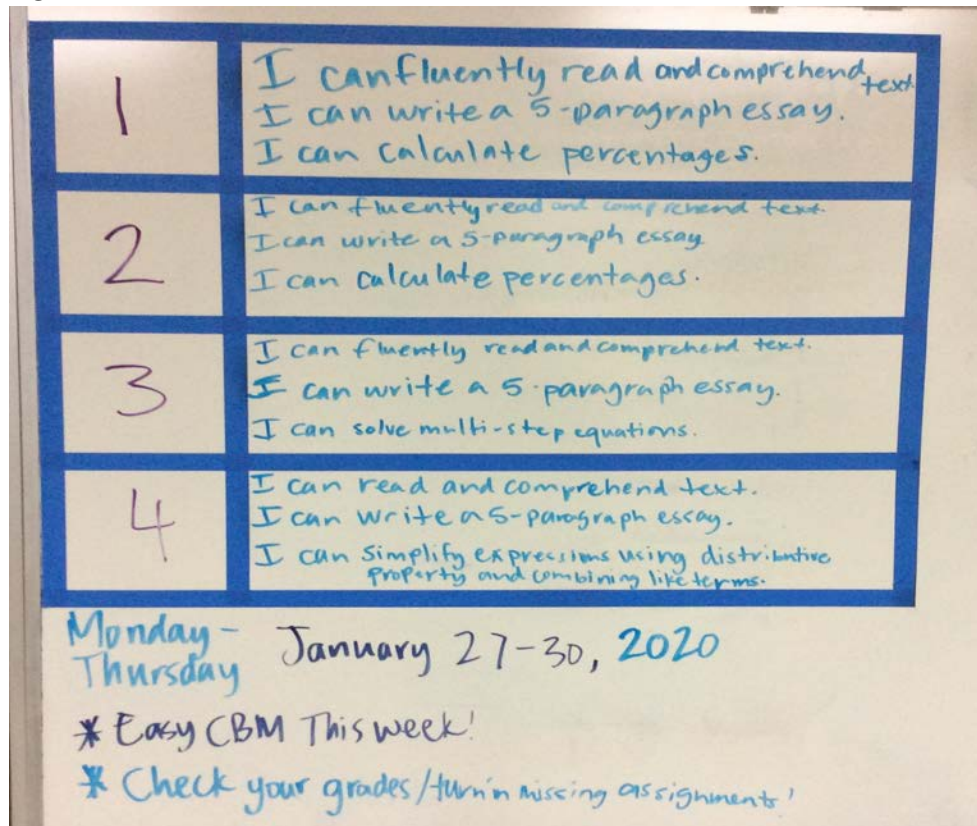 1
I can fluently read and comprehend text.
I can write a 5-paragraph essay.
I can calculate percentages.
2
I can fluently read and comprehend text.
I can write a 5-paragraph essay
I can calculate percentages.
3
I can fluently read and comprehend text.
I can write a 5-paragraph essay.
I can solve multi-step equations.
4
I can read and comprehend text.
I can write a 5-paragraph essay.
I can simplify expressions using distributive
property and combining like terms.
Monday-
Thursday
January 27-30, 2020
* Easy CBM This week!
* Check your grades/turn in missing assignments!